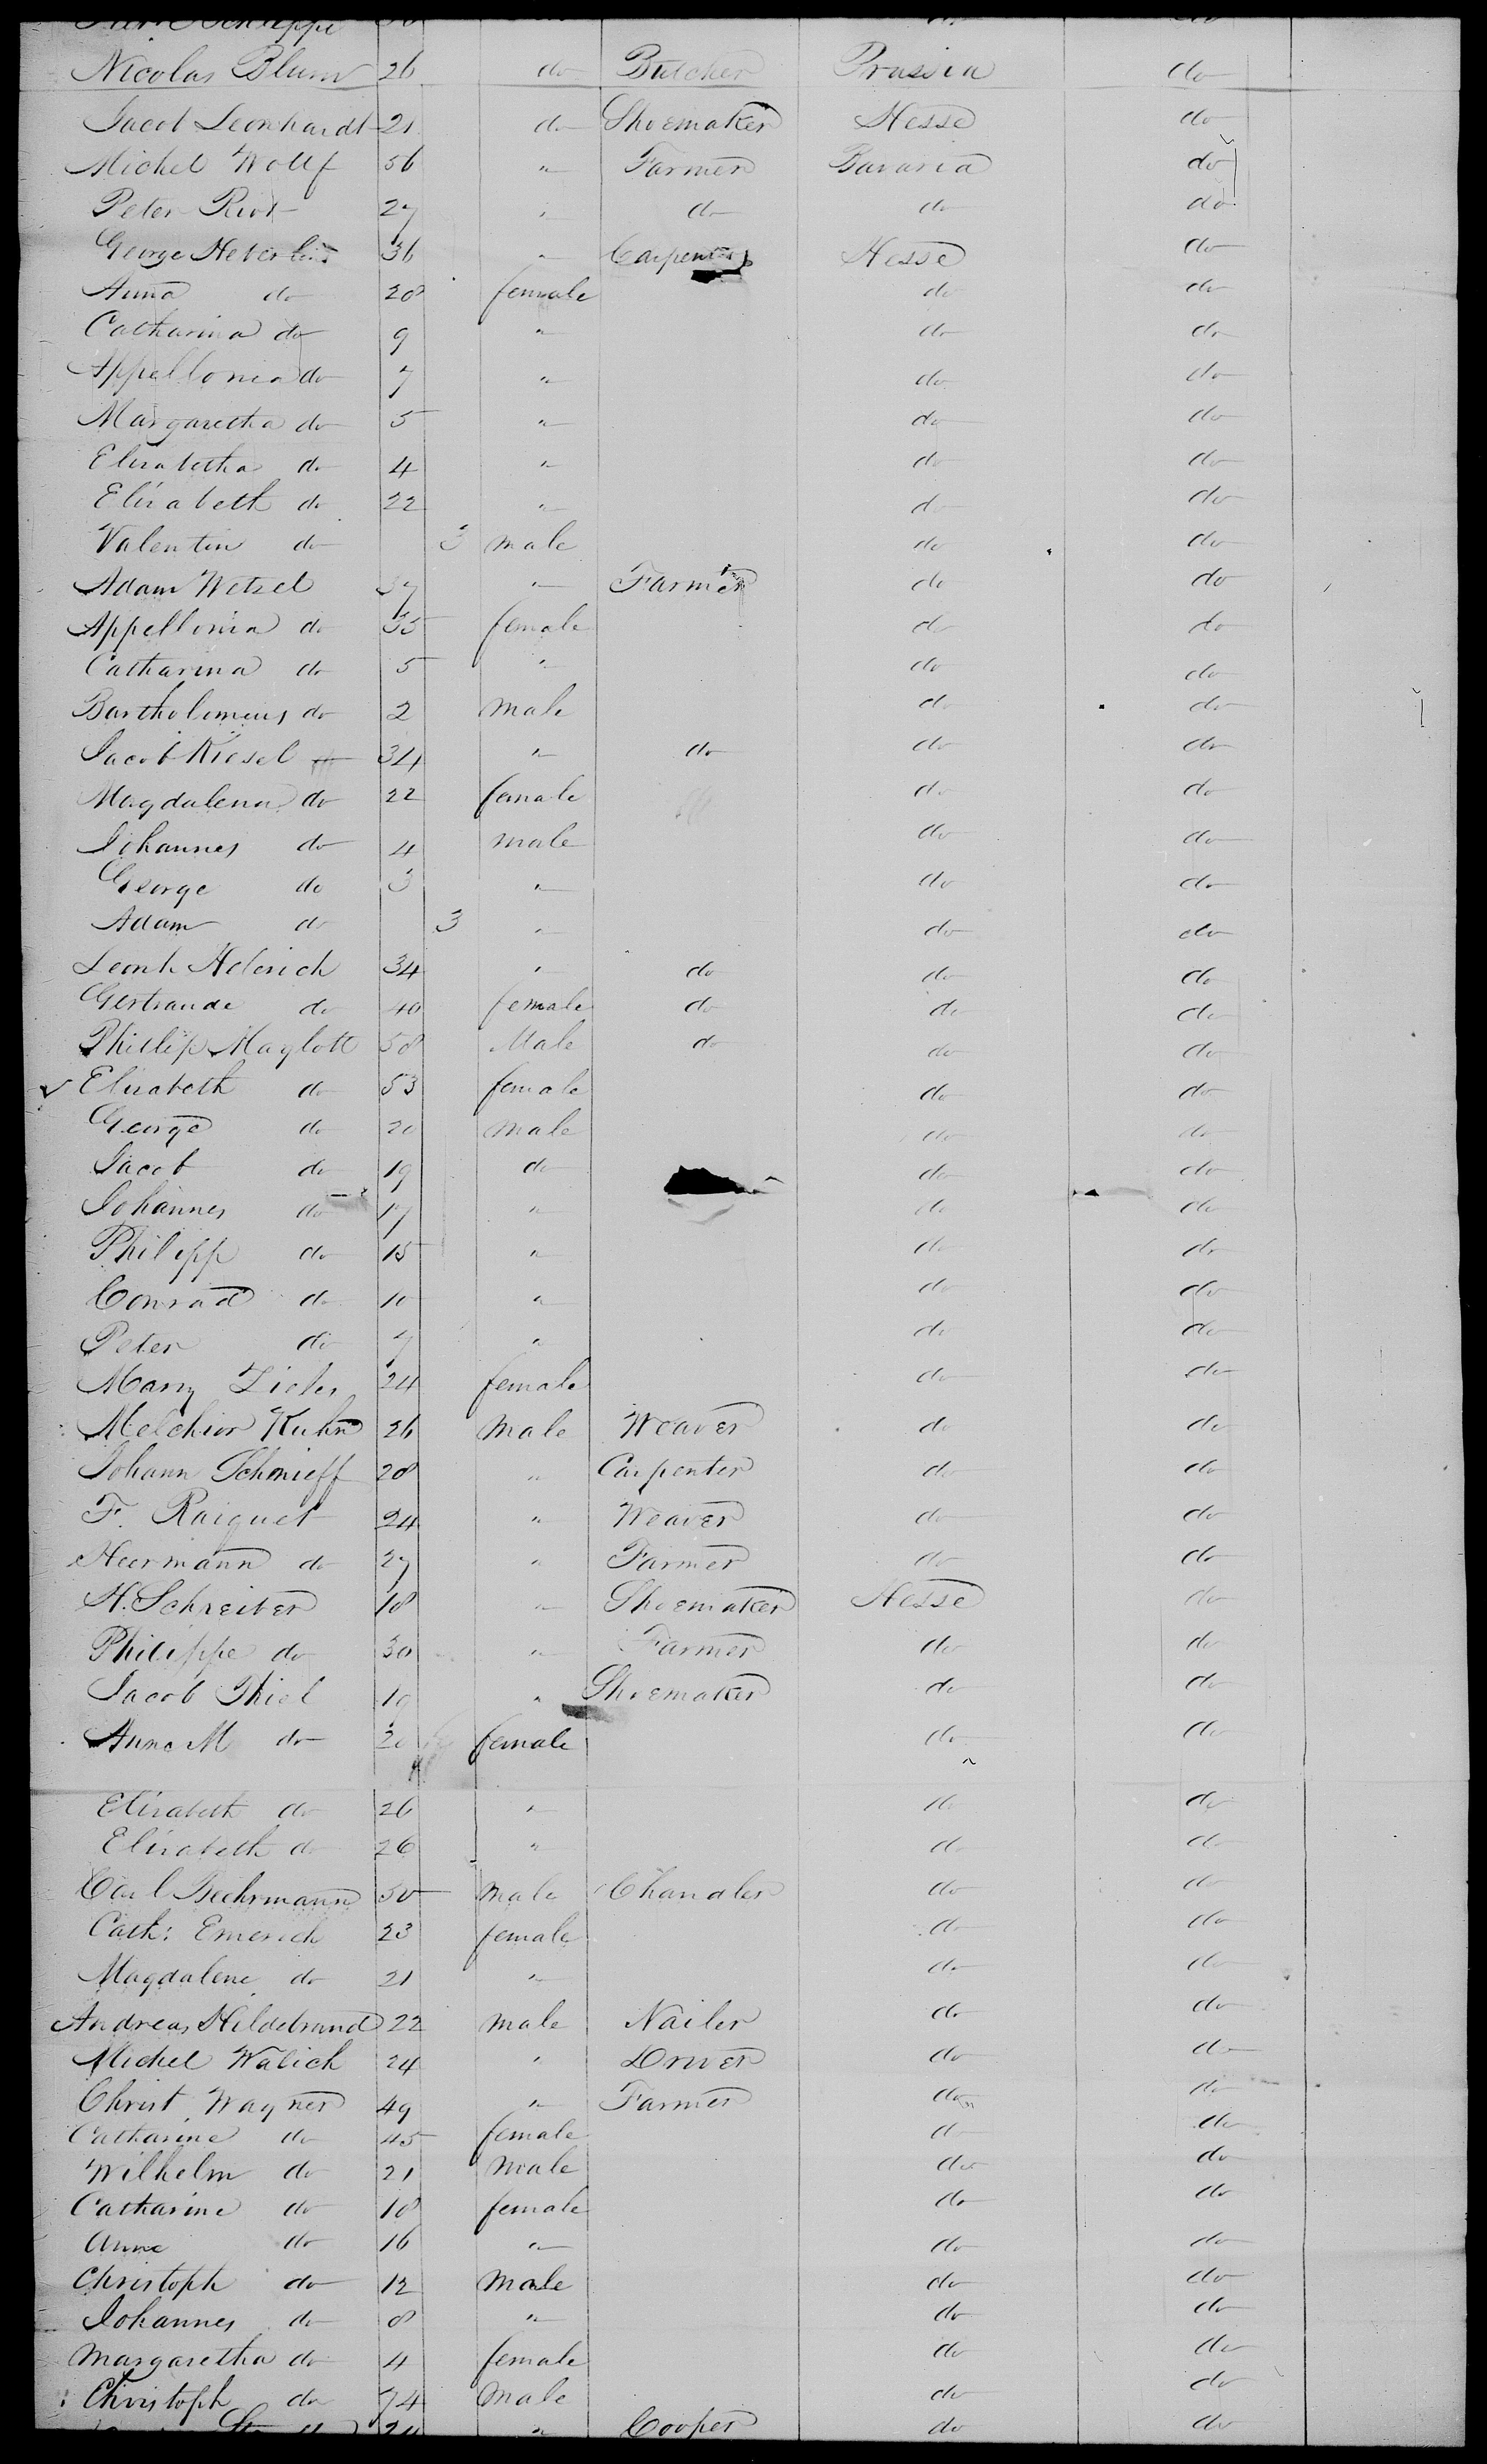 Nicolas Blum 26 do Butcher Prussia do
Jacob Leonhardt 21 do Shoemaker Hesse do
Michel Wollf 56 " Farmer Bavaria do
Peter 27 " do do do
George Heberlein 36 " Carpenter Hesse do
Anna do 28 female do do
Catharina do 9 " do do
Appellonia do 7 " do do
Margaretha do 5 " do do
Elisabetha do 4 " do do
Elisabeth do 22 " do do
Valentin do 3 male do do
Adam Wetzel 37 " Farmer do do
Appellonia do 35 female do do
Catharina do 5 " do do
Bartholomeus do 2 male do do
Jacob Kiesel 34 " do do do
Magdalena do 22 female do do
Johannes do 4 male do do
George do 3 " do do
Adam do 3 " do do
Leonh Helerich 34 " do do do
Gertraude do 40 female do do do
Phillip Maglott 58 Male do do do
Elisabeth do 53 female do do
George do 20 male do do
Jacob do 19 do do do
Johannes do 17 " do do
Philipp do 15 " do do
Conrad do 10 " do do
Peter do 7 " do do
Mary 24 female do do
Melchior Kuhn 26 male Weaver do do
Johann Schmieff 28 " Carpenter do do
F. Raiguet 24 " Weaver do do
Heermann do 27 " Farmer do do
H. Schreiber 18 " Shoemaker Hesse do
Philippe do 30 " Farmer do do
Jacob Thiel 19 " Shoemaker do do
Anna M do 20 female do do
Elisabeth do 26 " do do
Elisabeth do 26 " do do
Carl Bechrmann 50 male Chandler do do
Cath: Emerich 23 female do do
Magdalene do 21 " do do
Andreas Hildebrand 22 male Nailer do do
Michel Walich 24 " Driver do do
Christ Wagner 49 " Farmer do do
Catharine do 45 female do do
Wilhelm do 21 male do do
Catharine do 18 female do do
Anne do 16 " do do
Christoph do 12 male do do
Johannes do 8 " do do
Margaretha do 4 female do do
Christoph do 74 male do do
" Cooper do do